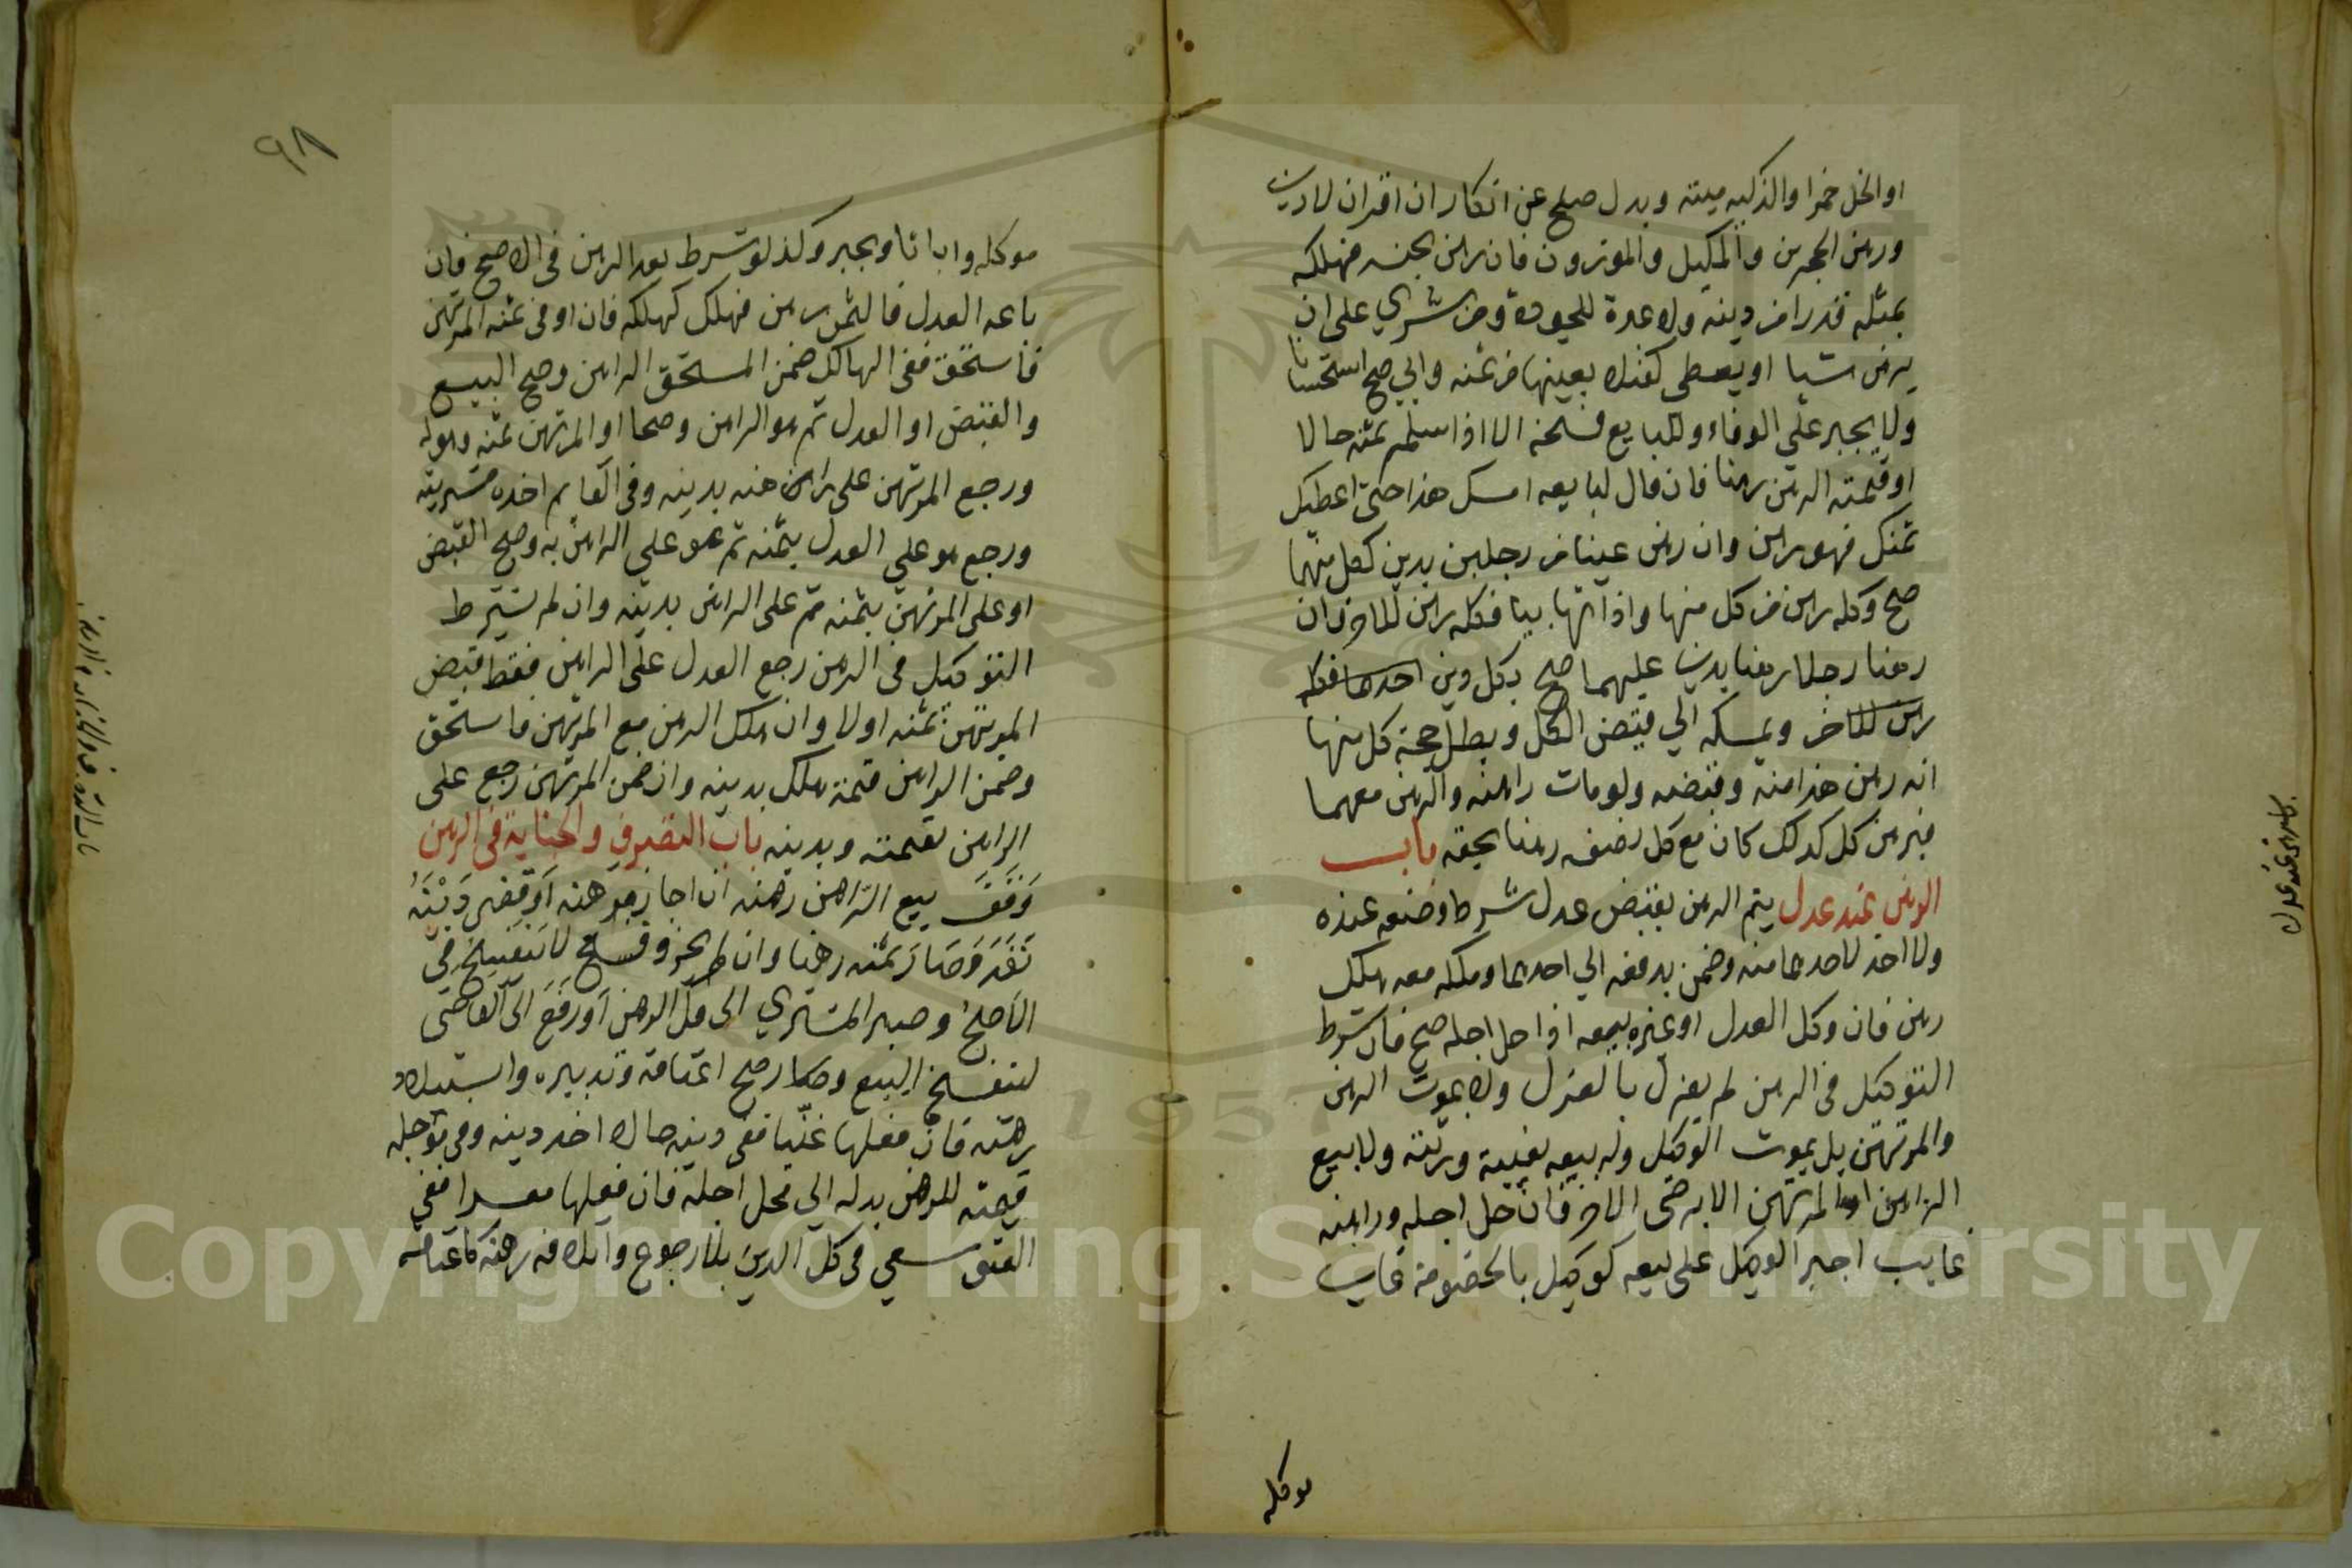 او الخل خمرا والذكيه ميتة وبدل صلح عن انكار ان اقران لا دين
ورهن الحجرين والمكيل والموزون فان رهن بجنسه فهلكه
بمثله قدرا من دينه ولا عبرة للجودة ومن شري على ان
يرهن شيا او يعطى كفيلا بعينها من ثمنه وابي صح استحسانا
ولا يجبر على الوفاء وللبايع فسخه الا اذا سلم ثمنه حالا
او قيمته الرهن رهنا فان قال لبايعه امسك هذا حتى اعطيك
ثمنك فهو رهن وان رهن عينا من رجلين بدين لكل منهما
صح وكله رهن من كل منها واذا تهايئا فكله رهن للاخر فان
رهنا رجلا رهنا بدين عليهما صح بكل دين احدهما فكله
رهن للاخر ويمسكه الي قبض الكل وبطل حجة كل منها
انه رهن هذا منه وقبضه ولو مات راهنه والرهن معهما
فبرهن كل كذلك كان مع كل نصفه رهنا بحقه باب
الرهن عند عدل يتم الرهن بقبض عدل شرط وضعه عنده
ولا اخذ لاحدهما منه وضمن بدفعه الي احدهما وهلكه معه هلك
رهن فان وكل العدل او غيره ببيعه اذا حل اجله صح فان شرط
التوكيل في الرهن لم يعزل بالعزل ولا بموت الرهن
والمرتهن بل بموت الوكيل وله بيعه بغيبة ورثته ولا بيع
الراهن او المرتهن الا برضى الاخر فان حل اجله وراهنه
غايب اجبر الوكيل على بيعه كوكيل بالخصومة غاب
موكله
باب الرهن عند عدل
٩٨
موكله واباها ويجبر وكذا لو شرط بعد الرهن في الاصح فان
باعه العدل فالثمن رهن فهلك كهلكه فان اوفى ثمنه المرتهن
فاستحق ففي الهالك ضمن المستحق الراهن وصح البيع
والقبض او العدل ثم هو الراهن وصحا او المرتهن ثمنه وهو له
ورجع المرتهن على راهنه بدينه وفي القايم اخذه مشتريه
ورجع هو على العدل بثمنه ثم هو على الراهن به وصح القبض
او على المرتهن بثمنه ثم على الراهن بدينه وان لم يشترط
التوكيل في الرهن رجع العدل على الراهن فقط قبض
المرتهن ثمنه اولا وان هلك الرهن مع المرتهن فاستحق
وضمن الراهن قيمته هلك بدينه وان ضمن المرتهن رجع على
الراهن بقيمته وبدينه باب التصرف والجناية في الرهن
وَقَفَ بيع الراهن رهنه ان اجاز مرتهنه اَوْ قضى دَيْنَهُ
نَفَذَ وَصَارَ ثمنه رهنا وان لم يجز وفسخ لا ينفسخ في
الاصح وصبر المشتري الى فك الرهن اَوْ رَفَعَ الى القاضى
لنفسخ البيع وصح اعتاقه وتدبيره واستيلاد
رهنه فان فعلها غنيا ففي دينه حالا اخذ دينه وفي مؤجله
قيمته للرهن بدله الي محل اجله فان فعلها معسرا ففي
العتق سعى في كل الدين بلا رجوع واتلافه رهنه كاعتاقه